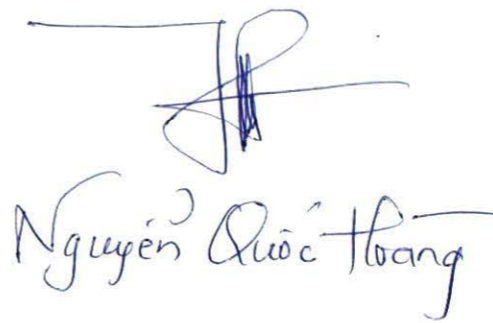 Nguyển Quốc Hoàng